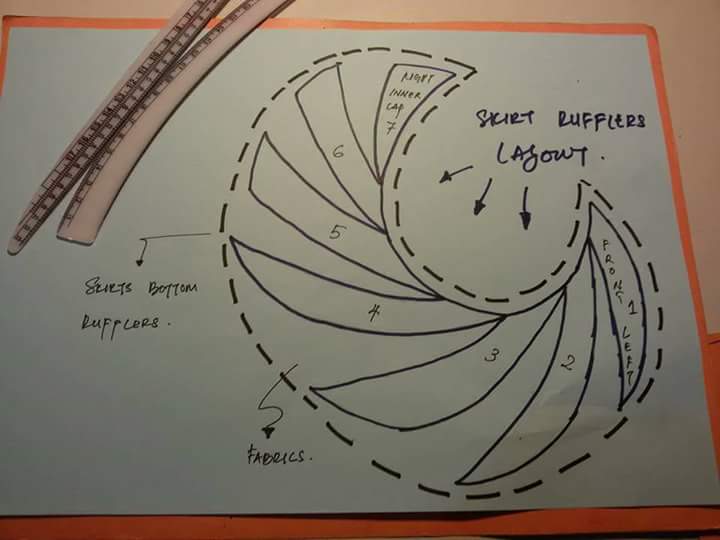 SKIRT RUFFLERS
LAYOUT.
RIGHT
INNER
LAP
7
6
5
4
3
2
FRONT 1 LEFT
SKIRTS BOTTOM
RUFFLERS.
FABRICS.